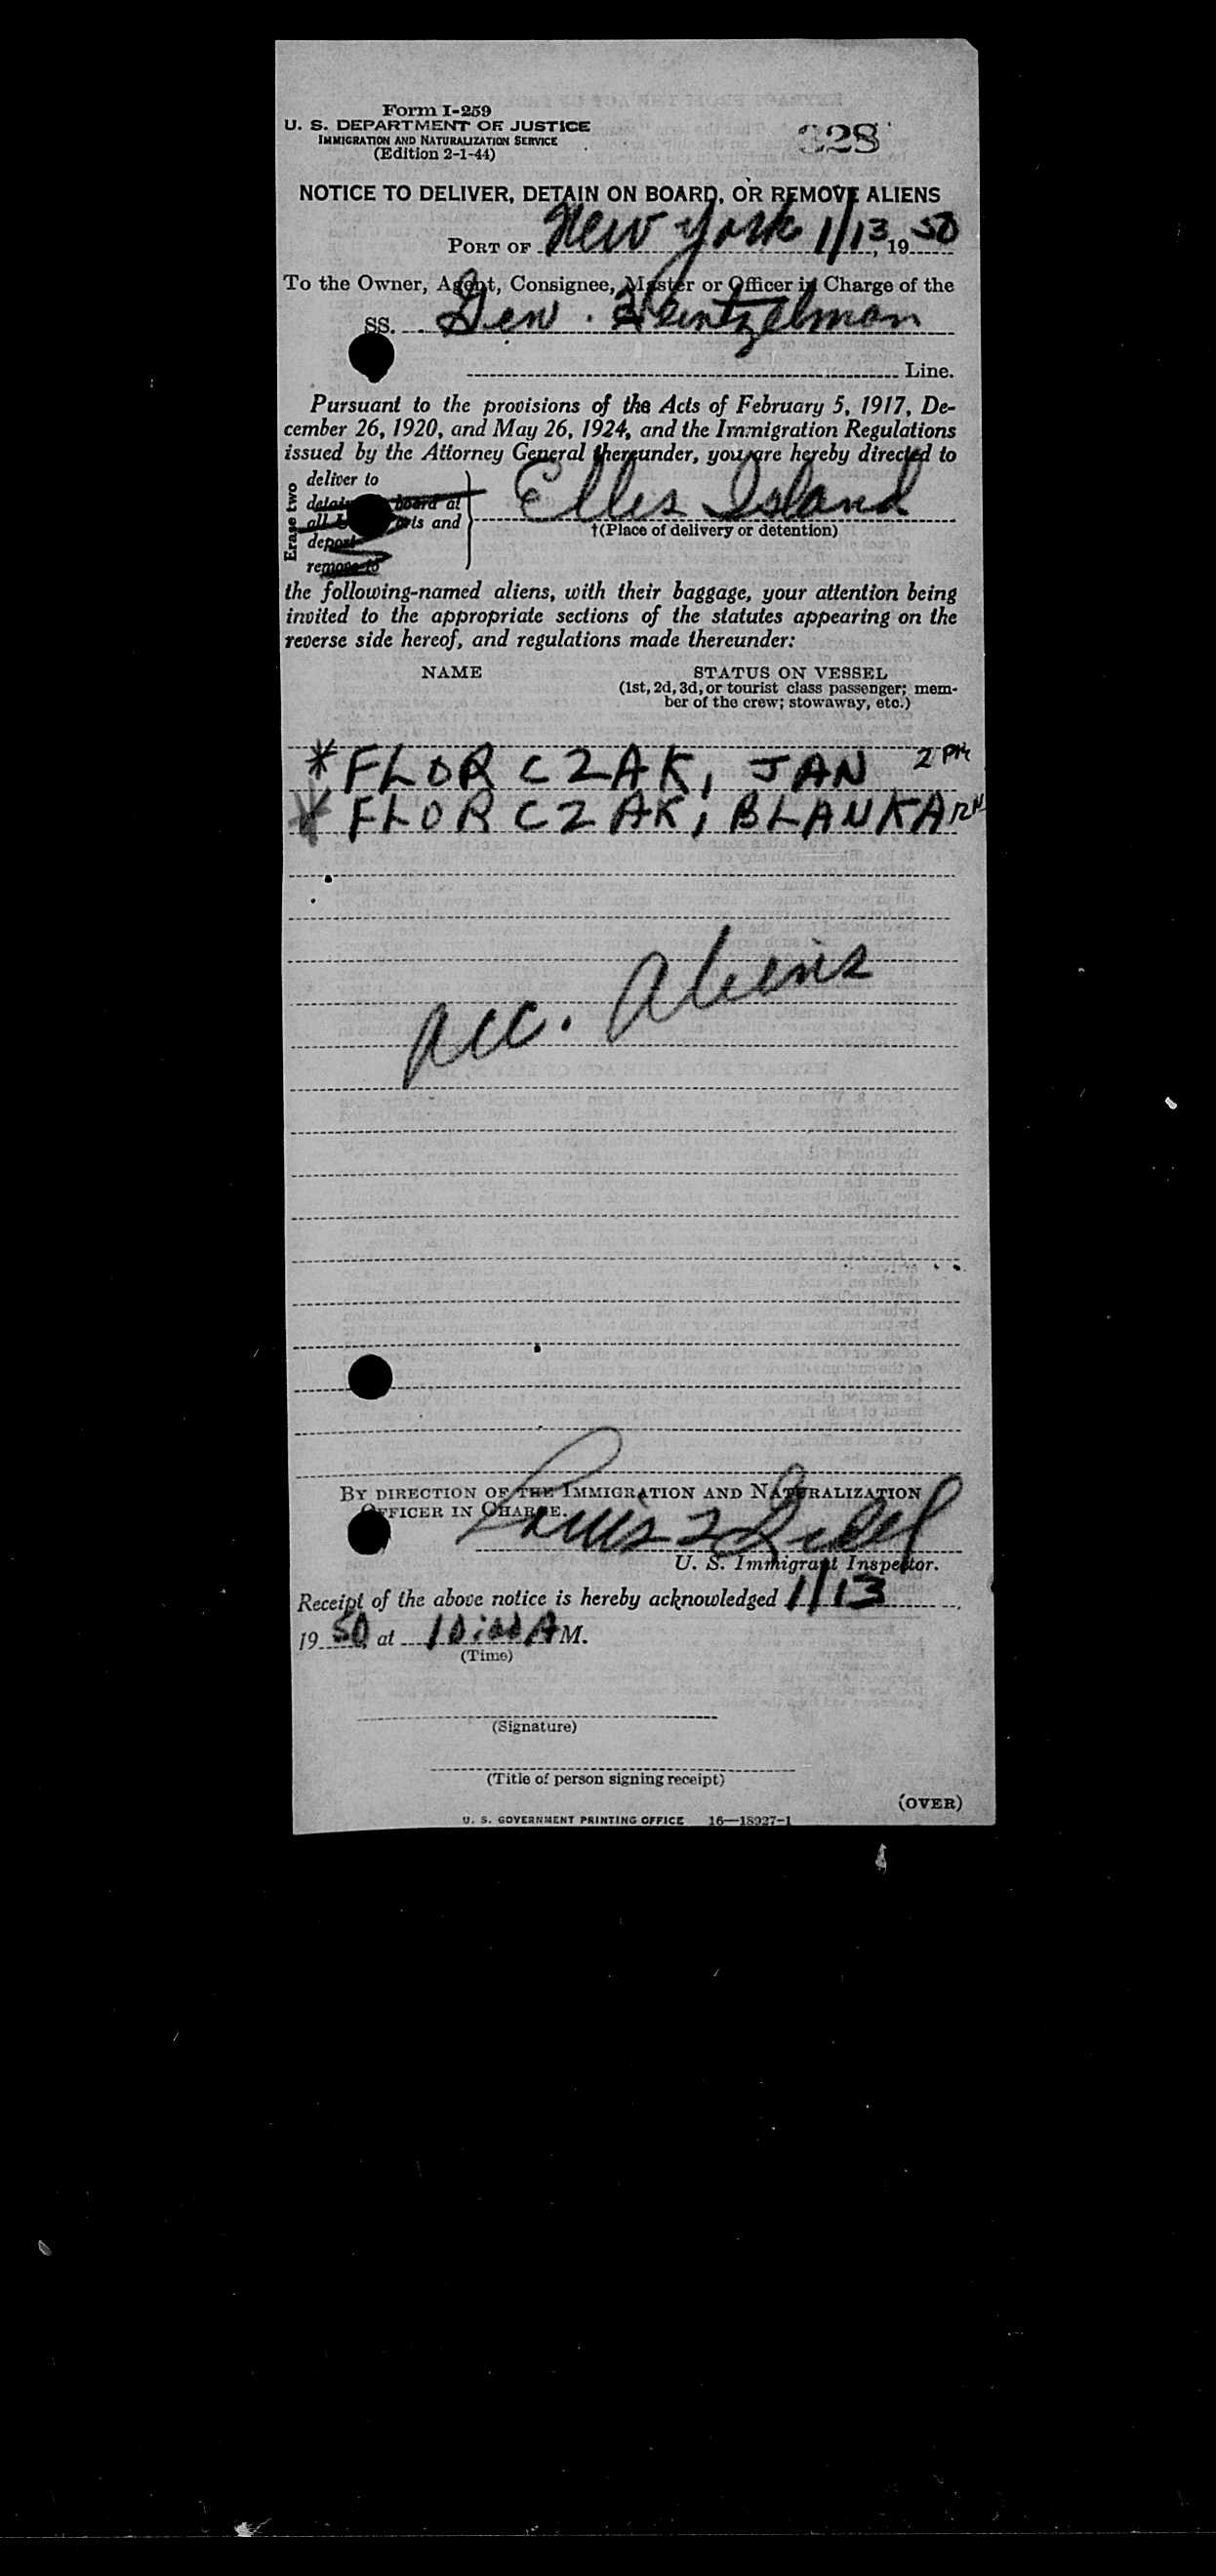 Form I-259
U. S. DEPARTMENT OF JUSTICE
IMMIGRATION AND NATURALIZATION SERVICE
(Edition 2-1-44)
328
NOTICE TO DELIVER, DETAIN ON BOARD, OR REMOVE ALIENS
PORT OF New York 1/13, 19 50
To the Owner, Agent, Consignee, Master or Officer in Charge of the
SS. Gen. Heintzelman
Line.
Pursuant to the provisions of the Acts of February 5, 1917, De-
cember 26, 1920, and May 26, 1924, and the Immigration Regulations
issued by the Attorney General thereunder, you are hereby directed to
Erase two
deliver to
board at
all and
deport
remove to
Ellis Island
†(Place of delivery or detention)
the following-named aliens, with their baggage, your attention being
invited to the appropriate sections of the statutes appearing on the
reverse side hereof, and regulations made thereunder:
NAME STATUS ON VESSEL
(1st, 2d, 3d, or tourist class passenger; mem-
ber of the crew; stowaway, etc.)
* FLORCZAK, JAN 2 PM
* FLORCZAK, BLANKA
acc. Aliens
BY DIRECTION OF THE IMMIGRATION AND NATURALIZATION
OFFICER IN CHARGE.
Louis
U. S. Immigrant Inspector.
Receipt of the above notice is hereby acknowledged 1/13
19 50, at 10:00 A M.
(Time)
(Signature)
(Title of person signing receipt)
(OVER)
U. S. GOVERNMENT PRINTING OFFICE 16—18927-1